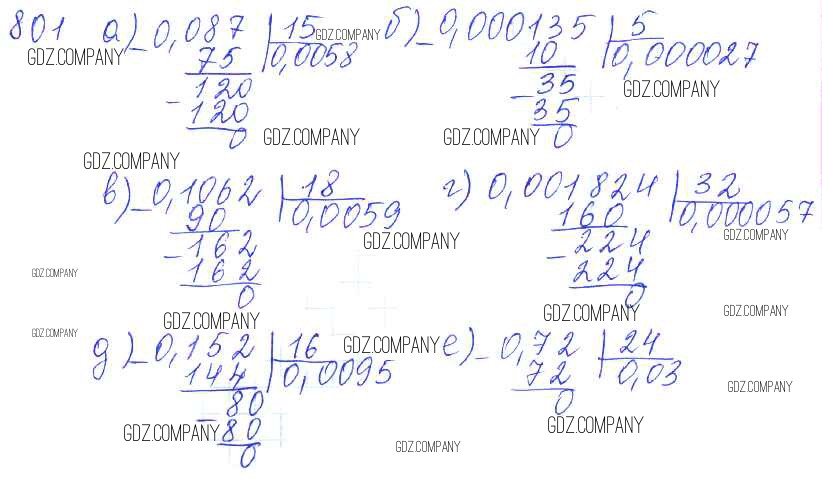 801 а) 0,087 | 15 GDZ.COMPANY б) 0,000135 | 5
GDZ.COMPANY 75 0,0058 10 0,000027
120 35 GDZ.COMPANY
120 35
0 GDZ.COMPANY GDZ.COMPANY 0
GDZ.COMPANY
в) 0,1062 | 18 г) 0,001824 | 32
90 0,0059 160 0,000057
162 GDZ.COMPANY 224 GDZ.COMPANY
GDZ.COMPANY 162 224
0 0
GDZ.COMPANY GDZ.COMPANY GDZ.COMPANY
GDZ.COMPANY
д) 0,152 | 16 GDZ.COMPANY е) 0,72 | 24
144 0,0095 72 0,03
80 0 GDZ.COMPANY
GDZ.COMPANY 80 GDZ.COMPANY
0 GDZ.COMPANY